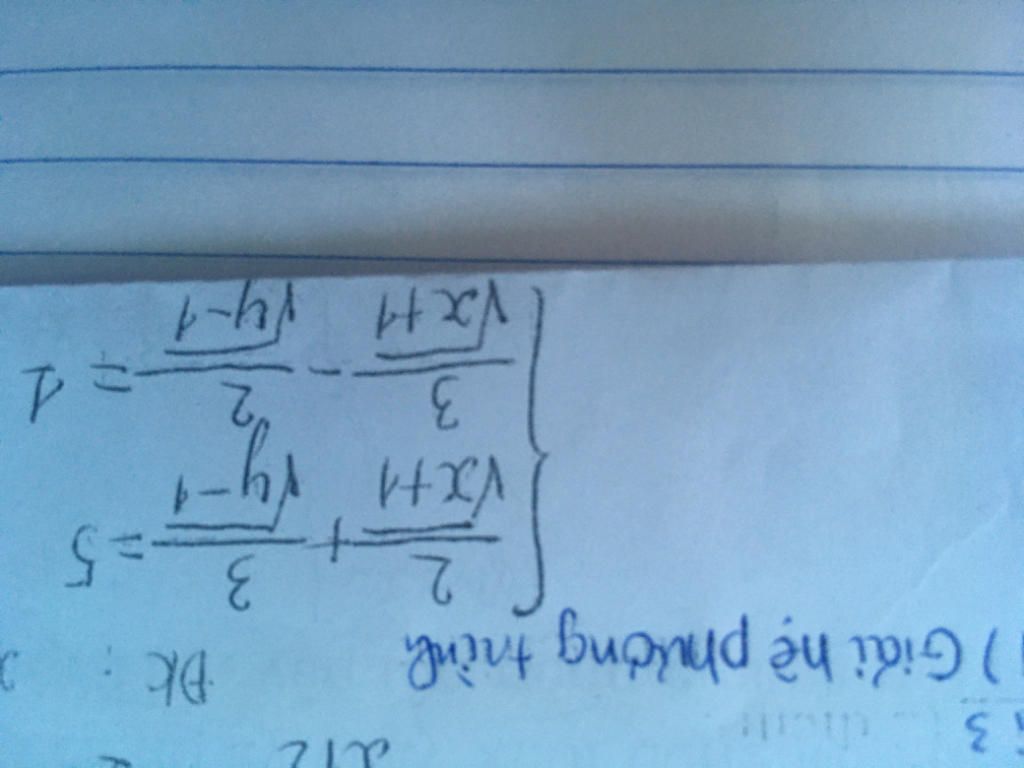 3
1) Giải hệ phương trình
2/√x+1 + 3/√y-1 = 5
3/√x+1 - 2/√y-1 = 1
ĐK :